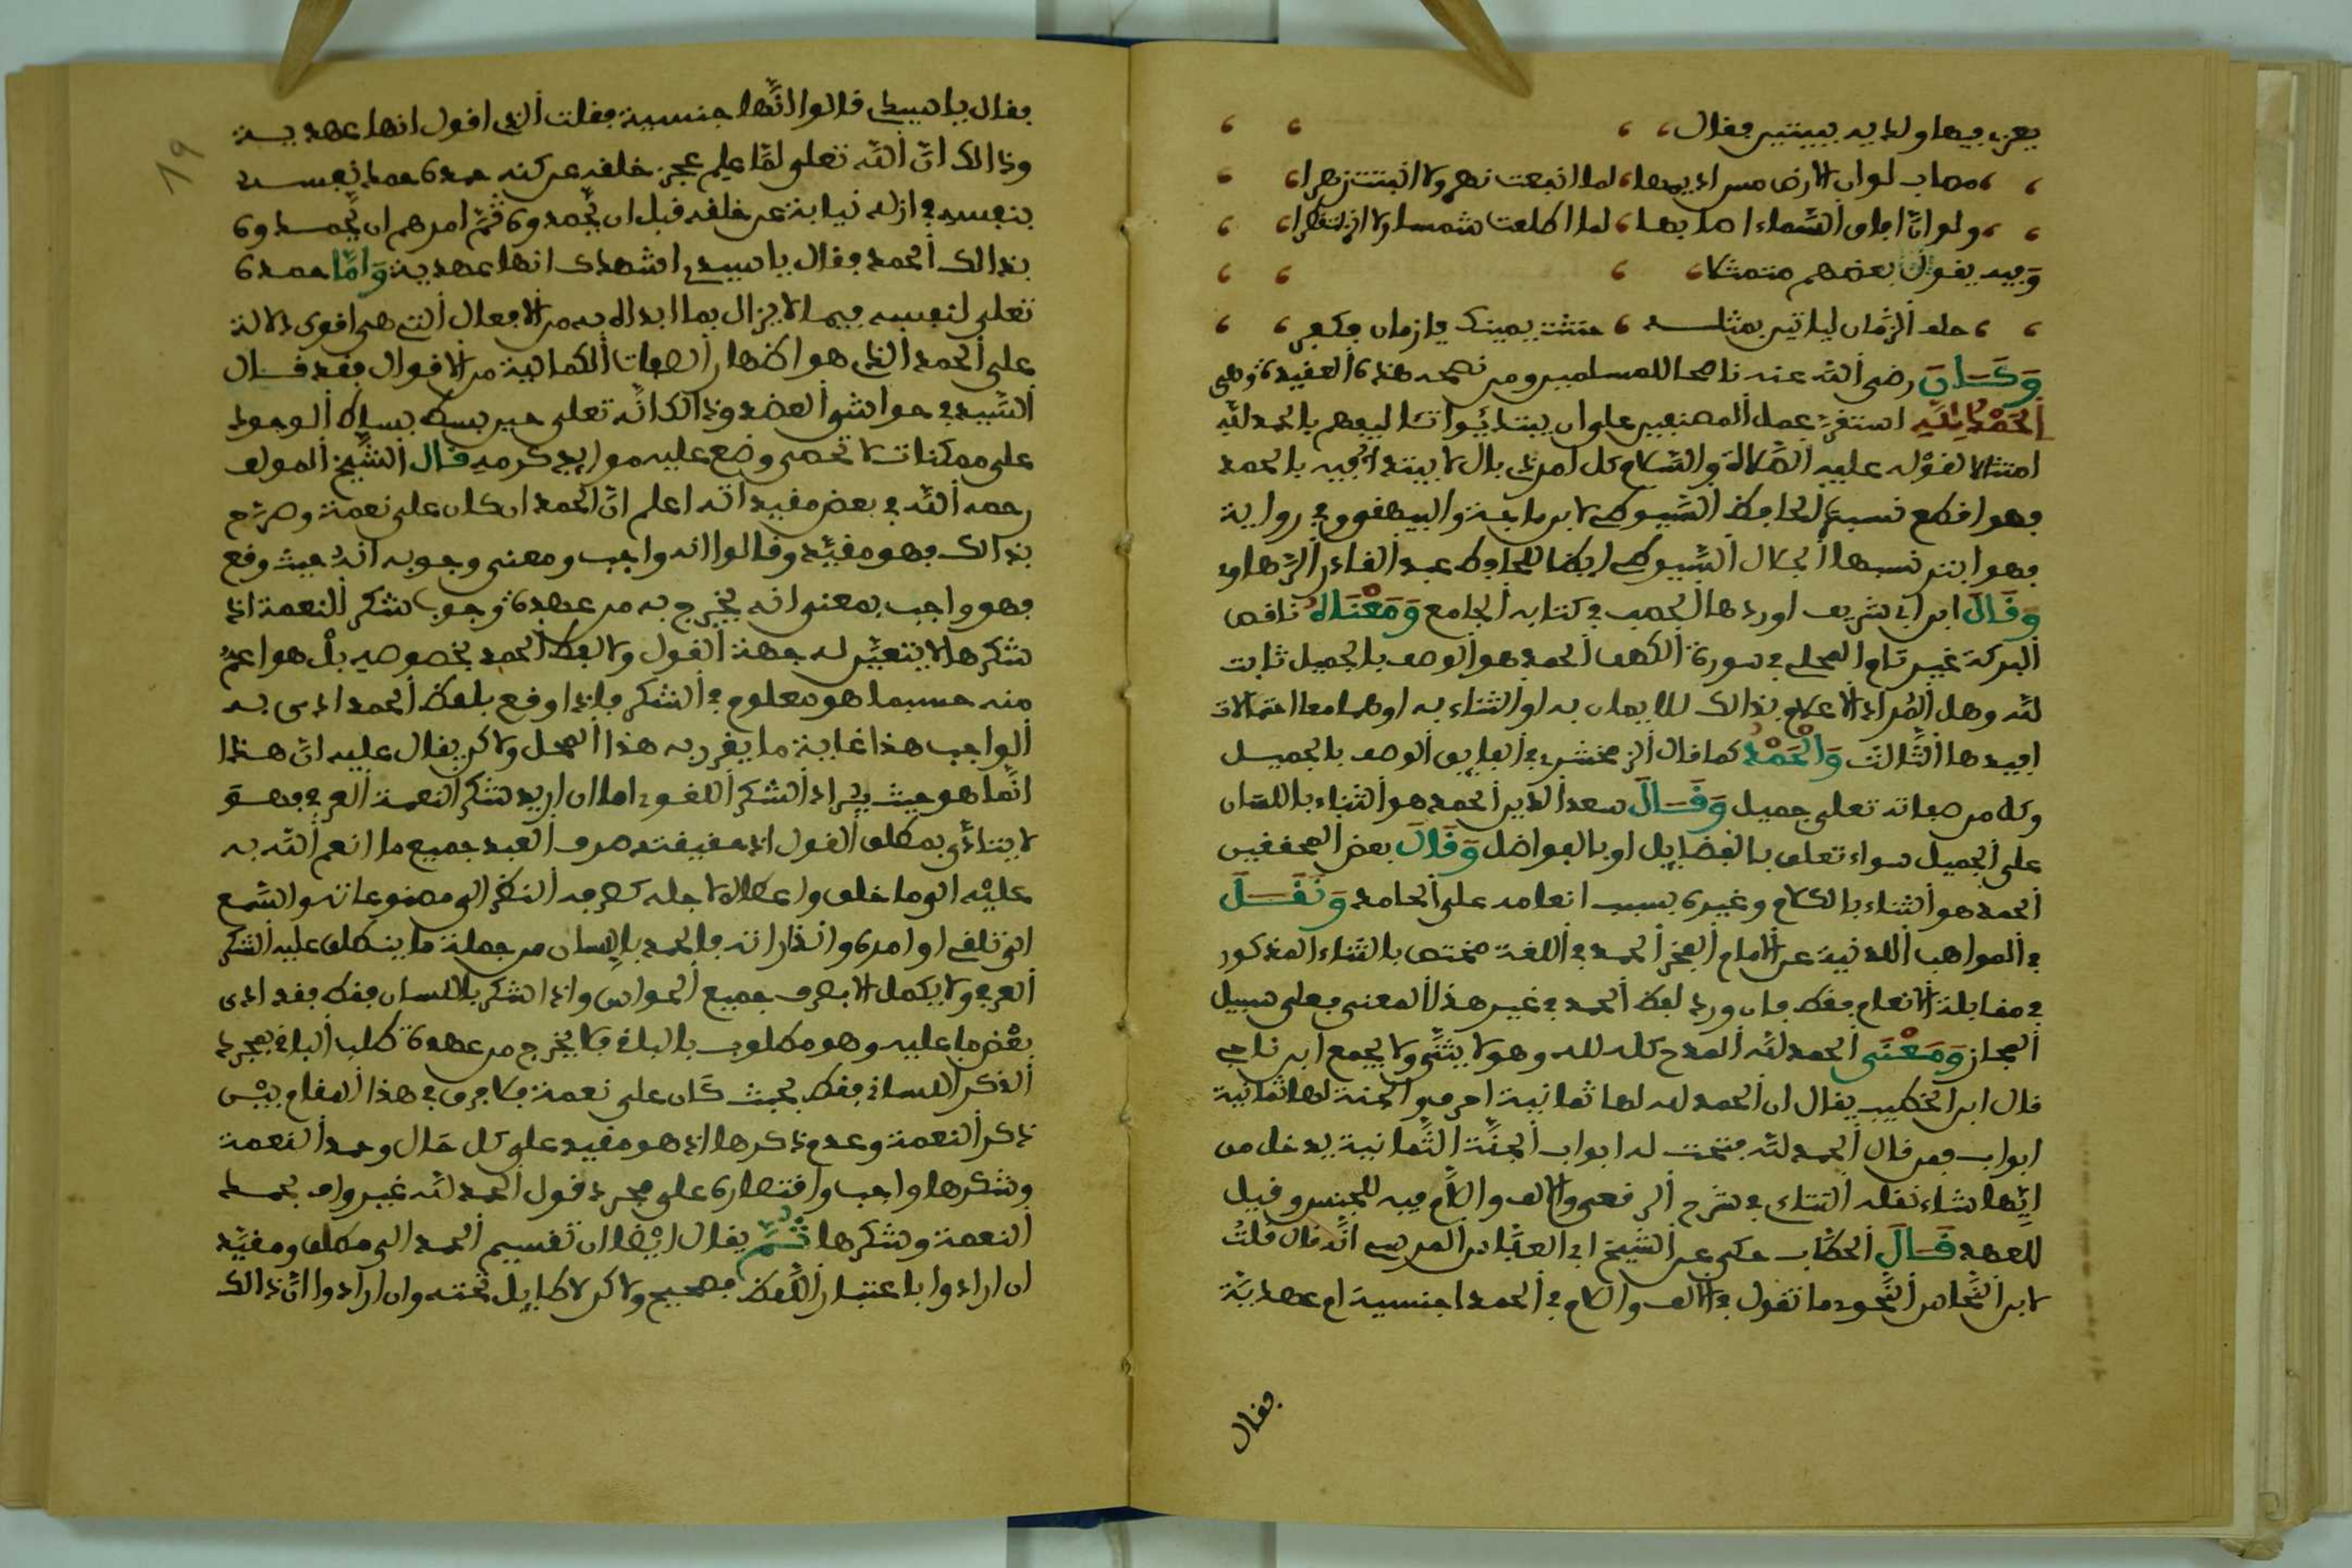 يعزى فيها ولديه ببيتين فقال
مصاب لو ان الارض مس اديمها لما انبعت نهر ولا انبتت زهرا
ولو ان افاق السماء اصابها لما اطلعت شمسا ولا انزلت قطرا
وفيه يقول بعضهم متمثلا
حلف الزمان لياتين بمثله حنثت يمينك يا زمان فكفر
وكان رضى الله عنه ناصحا للمسلمين ومن نصحه هذه العقيدة وهى
الحمد لله استقر عمل المصنفين على ان يبتدئوا تئاليفهم بالحمد لله
امتثالا لقوله عليه الصلاة والسلام كل امر ذى بال لا يبتدا فيه بالحمد
فهو اقطع نسبه الحافظ السيوطى لابن ماجة والبيهقى وفى رواية
فهو ابتر نسبها الجلال السيوطى ايضا للحافظ عبد القادر الرهاوى
وقال ابن ابى شريف اوردها الخطيب فى كتابه الجامع ومعناه ناقص
البركة غير تام المحلى فى سورة الكهف الحمد هو الوصف بالجميل ثابت
لله وهل المراد الاعلام بذالك للايمان به او الثناء به او هما معا احتمالات
افيدها الثالث والحمد كما قال الزمخشرى فى الفايق الوصف بالجميل
وكل من صفاته تعلى جميل وقال سعد الدين الحمد هو الثناء باللسان
على الجميل سواء تعلق بالفضايل او بالفواضل وقال بعض المحققين
الحمد هو الثناء بالكلام وغيره بسبب انعامه على الحامد ونقل
فى المواهب اللدنية عن الامام الفخر الحمد فى اللغة مختص بالثناء المذكور
فى مقابلة الانعام فقط فان ورد لفظ الحمد فى غير هذا المعنى فعلى سبيل
المجاز ومعنى الحمد لله المدح كله لله وهو لا يثنى ولا يجمع ابن ناجى
قال ابن الخطيب يقال ان الحمد لله لها ثمانية احرف والجنة لها ثمانية
ابواب فمن قال الحمد لله فتحت له ابواب الجنة الثمانية يدخل من
ايها شاء نقله التتاى فى شرح الرقعى والالف واللام فيه للجنس وقيل
للعهد قال الحطاب حكى عن الشيخ ابى العباس المرسى انه قال قلت
لابن النحاس النحوى ما تقول فى الالف واللام فى الحمد اجنسية ام عهدية
فقال
19
فقال يا سيدى قالوا انها جنسية فقلت الذى اقول انها عهدية
وذالك ان الله تعلى لما علم عجز خلقه عن كنه حمده حمد نفسه
بنفسه فى ازله نيابة عن خلقه قبل ان يحمدوه ثم امرهم ان يحمدوه
بذالك الحمد فقال يا سيدى اشهدك انها عهدية واما حمده
تعلى لنفسه فيما لا يزال بما ابداه به من الافعال التى هى اقوى دلالة
على الحمد الذى هو اظهار الصفات الكمالية من الاقوال فقد قال
السيد فى حواشى العضد وذالك انه تعلى حين بسط بساط الوجود
على ممكنات لا تحصى وضع عليه موايد كرمه قال الشيخ المولف
رحمه الله فى بعض مفيداته اعلم ان الحمد ان كان على نعمة وصرح
بذالك فهو مقيد وقالوا انه واجب ومعنى وجوبه انه حيث وقع
فهو واجب بمعنى انه يخرج به من عهدة وجوب شكر النعمة اذ
شكرها لا يتعين له جهة القول ولا لفظ الحمد بخصوصه بل هو اعم
منه حسبما هو معلوم فى الشكر فاذا وقع بلفظ الحمد ادى به
الواجب هذا غاية ما يقرر به هذا المحل ولاكن يقال عليه ان هذا
انما هو حيث يراد الشكر اللغوى اما ان اريد شكر النعمة العرفى فهو
لا يتادى بمطلق القول اذ حقيقته صرف العبد جميع ما انعم الله به
عليه الى ما خلق واعطاه لاجله كصرفه النظر الى مصنوعاته والسمع
الى تلقى اوامره وانذاراته فالحمد باللسان من جملة ما ينطلق عليه الشكر
العرفى ولا يكمل الا بصرف جميع الحواس واذا شكر باللسان فقط فقد ادى
بعض ما عليه وهو مطلوب بالباقى فلا يخرج من عهدة طلب الباقى بمجرد
الذكر اللسانى فقط بحيث كان على نعمة فلا فرق فى هذا المقام بين
ذكر النعمة وعدم ذكرها اذ هو مقيد على كل حال وحمد النعمة
وشكرها واجب واقتصاره على مجرد قول الحمد لله غير واف بحمد
النعمة وشكرها ثم يقال ايضا ان تقسيم الحمد الى مطلق ومقيد
ان ارادوا باعتبار اللفظ فصحيح ولاكن لا طايل تحته وان ارادوا ان ذالك